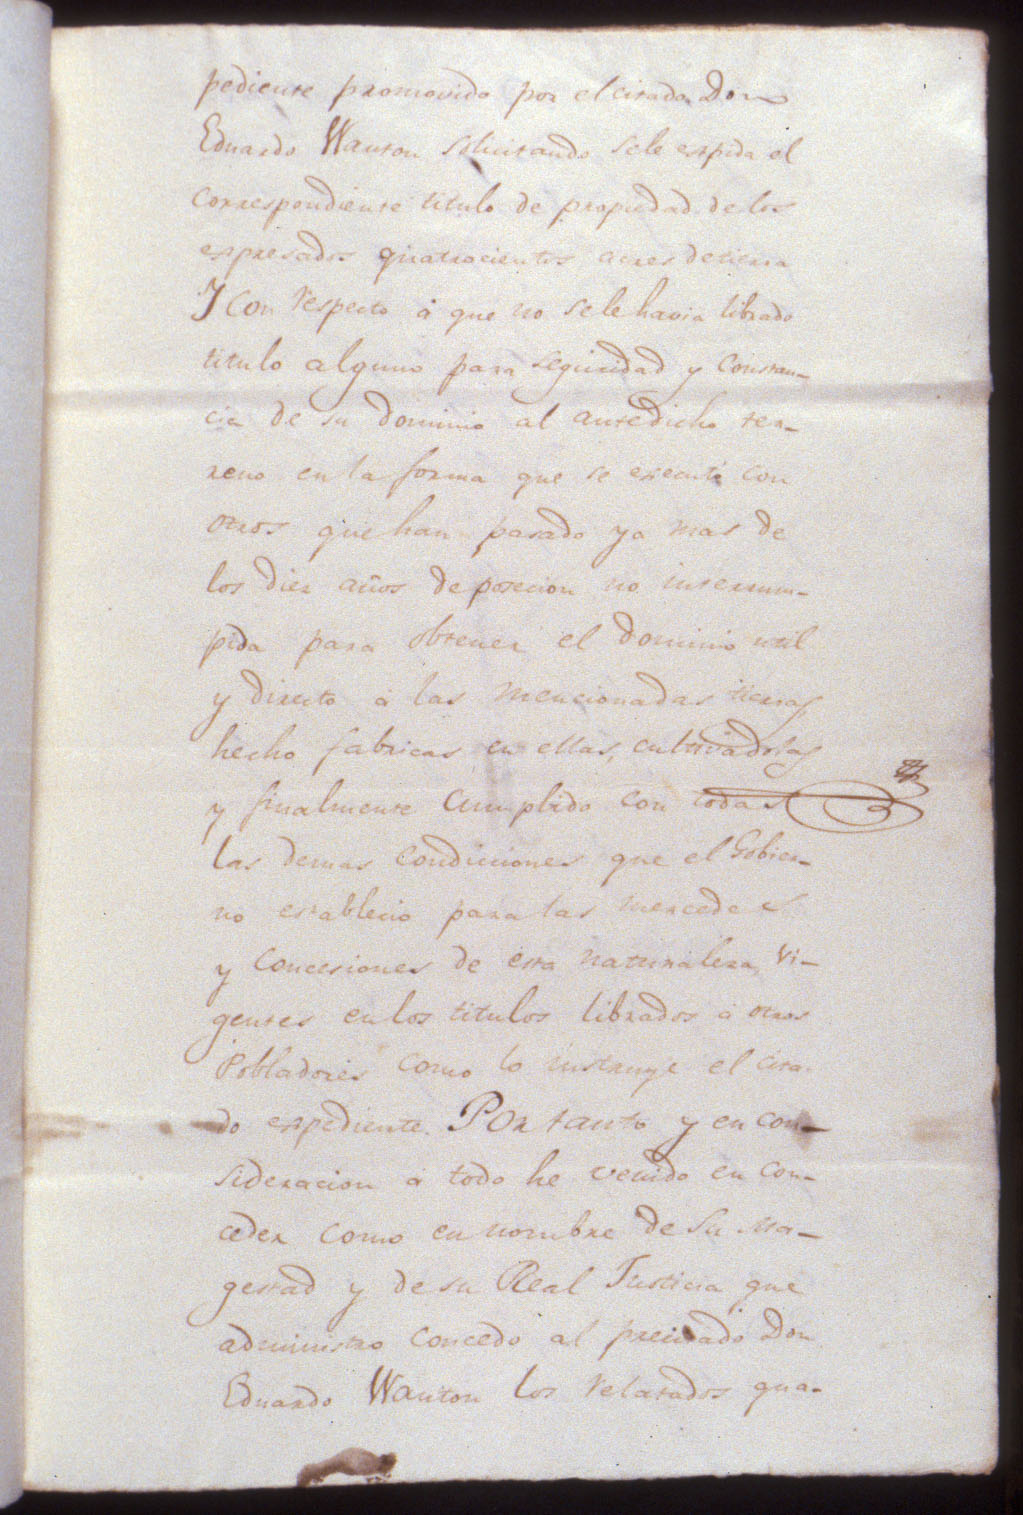 pediente promovido por el citado Don
Eduardo Wanton solicitando sele espida el
correspondiente titulo de propiedad de los
espresados quatrocientos acres de tierra
Y con respecto á que no sele havia librado
titulo alguno para seguridad y constan-
cia de su dominio al antedicho ter-
reno en la forma que se executó con
otros que han pasado ya mas de
los diez años de posecion no interrum-
pida para obtener el dominio util
y directo á las mencionadas tierras
hecho fabricas en ellas, cultivadolas
y finalmente cumplido con todas
las demas condiciones que el Gobier-
no establecio para las mercedes
y concesiones de esta naturaleza, vi-
gentes en los titulos librados á otros
Pobladores como lo instruye el cita-
do espediente. Por tanto y en con-
sideracion á todo he venido en con-
ceder como en nombre de Su Ma-
gestad y de su Real Justicia que
administro concedo al precitado Don
Eduardo Wanton los relatados qua-